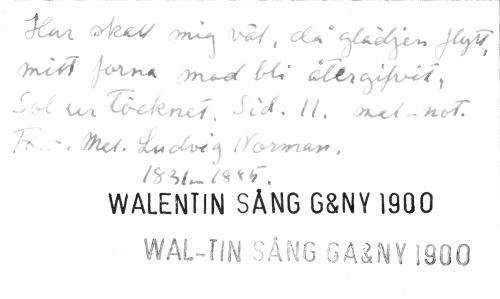 Hur skall mig väl, då glädjen flytt,
mitt forna mod bli återgifvit,
Sol ur töcknet. Sid. 11. mel-not.
Mel. Ludvig Norman.
1831-1885.
WALENTIN SÅNG G&NY 1900
WAL-TIN SÅNG GA&NY 1900